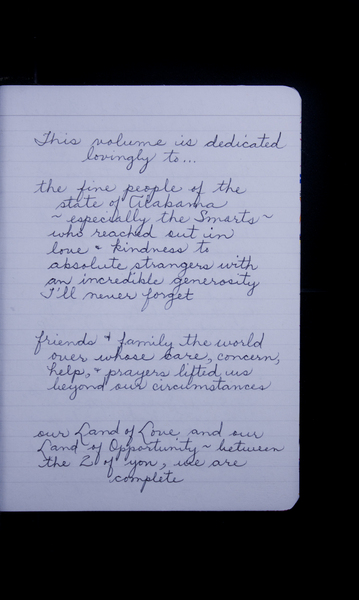 This volume is dedicated
lovingly to...
the fine people of the
state of Alabama
~ especially the Smarts ~
who reached out in
love & kindness to
absolute strangers with
an incredible generosity
I'll never forget
friends & family the world
over whose care, concern,
help, & prayers lifted us
beyond our circumstances
our Land of Love and our
Land of Opportunity ~ between
the 2 of you, we are
complete